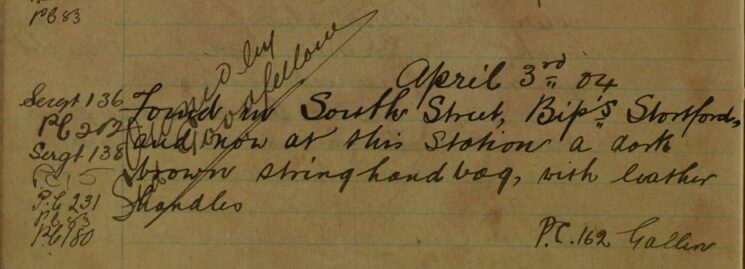 PC 83
April 3rd 04
Sergt 136
PC 202
Sergt 138
P.C 231
PC 83
PC 180
Claimed by
Goodfellow
Found in South Street, Bip's Stortford,
and now at this Station a dark
brown string hand bag, with leather
handles
P.C. 162 Gallin